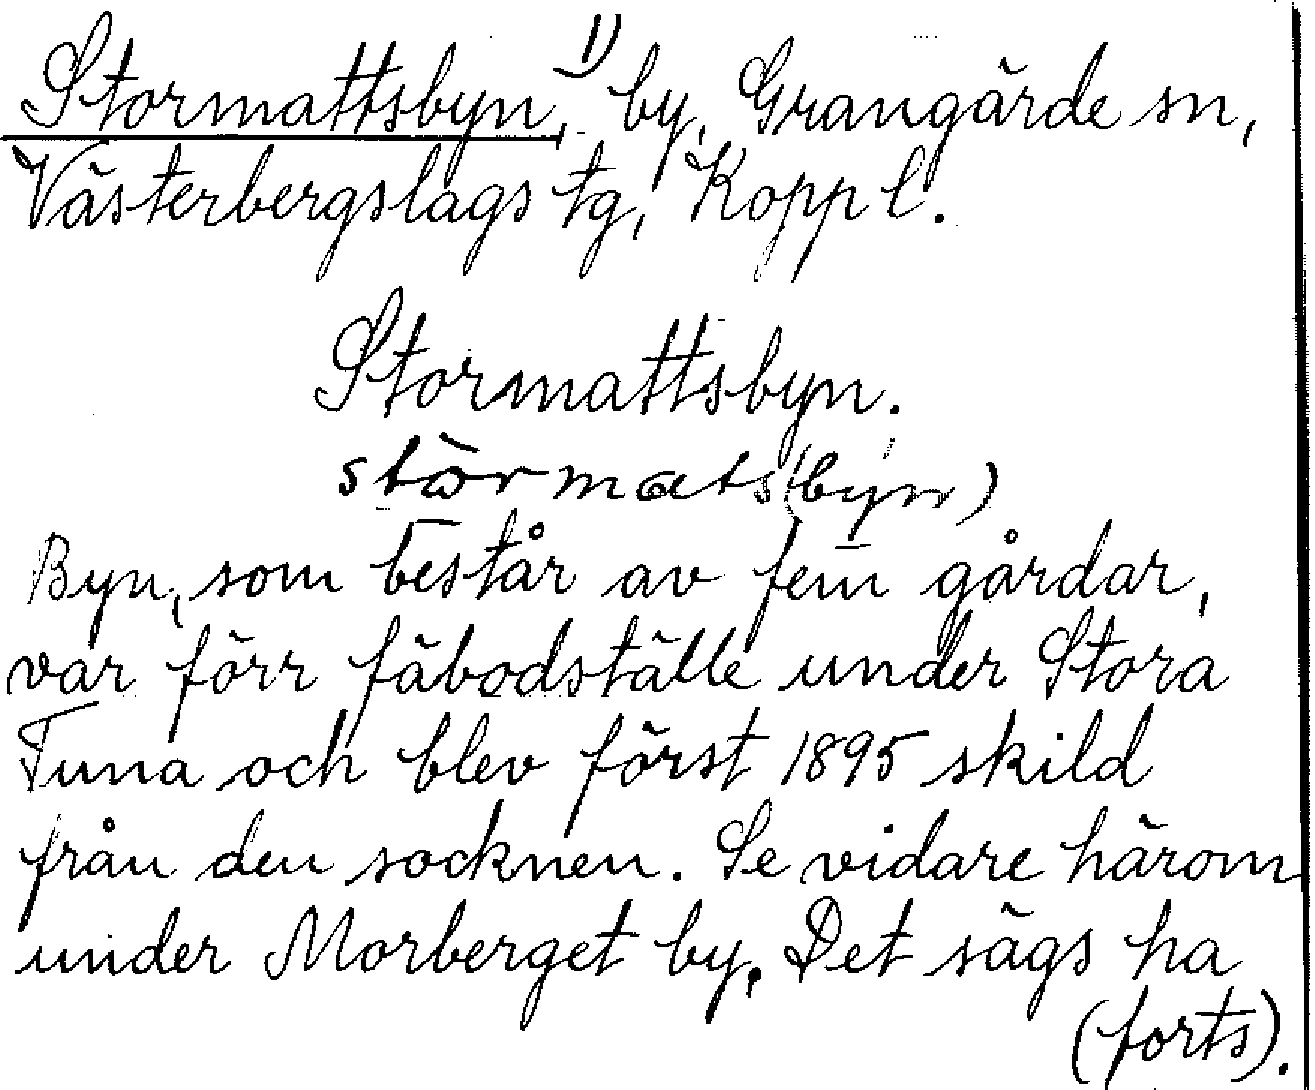 Stormattsbyn,¹⁾ by, Grangärde sn,
Västerbergslags tg, Kopp l.
Stormattsbyn.
stòrmats(byn)
Byn, som består av fem gårdar,
var förr fäbodställe under Stora
Tuna och blev först 1895 skild
från den socknen. Se vidare härom
under Morberget by. Det sägs ha
(forts).